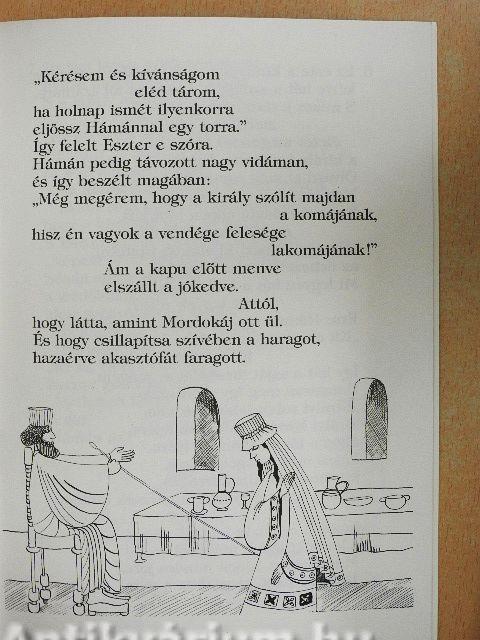 „Kérésem és kívánságom
eléd tárom,
ha holnap ismét ilyenkorra
eljössz Hámánnal egy torra.”
Így felelt Eszter e szóra.
Hámán pedig távozott nagy vidáman,
és így beszélt magában:
„Még megérem, hogy a király szólít majdan
a komájának,
hisz én vagyok a vendége felesége
lakomájának!”
Ám a kapu előtt menve
elszállt a jókedve.
Attól,
hogy látta, amint Mordokáj ott ül.
És hogy csillapítsa szívében a haragot,
hazaérve akasztófát faragott.